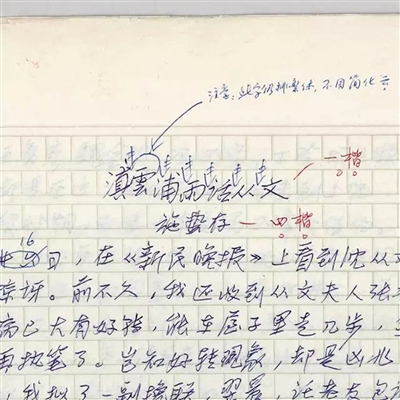 注意：此字仍排繁体，不用简化
滇雲浦雨话从文 一楷
施蛰存 — 四楷
16日，在《新民晚报》上看到沈从文
惊讶。前不久，我还收到从文夫人张
病已大有好转，能在屋子里走几步，
再执笔了。岂知好转现象，却是凶兆
，我拟了一副挽联，翌晨，托老友包